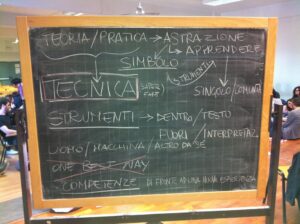 TEORIA/PRATICA → ASTRAZIONE
↳ APPRENDERE
SIMBOLO
STRUMENTI
TECNICA SAPER FARE
SINGOLO/COMUNITÀ
STRUMENTI → DENTRO/TESTO
FUORI/INTERPRETAZ.
UOMO/MACCHINA/ALTRO DA SÉ
ONE BEST WAY
COMPETENZE DI FRONTE AD UNA NUOVA ESPERIENZA